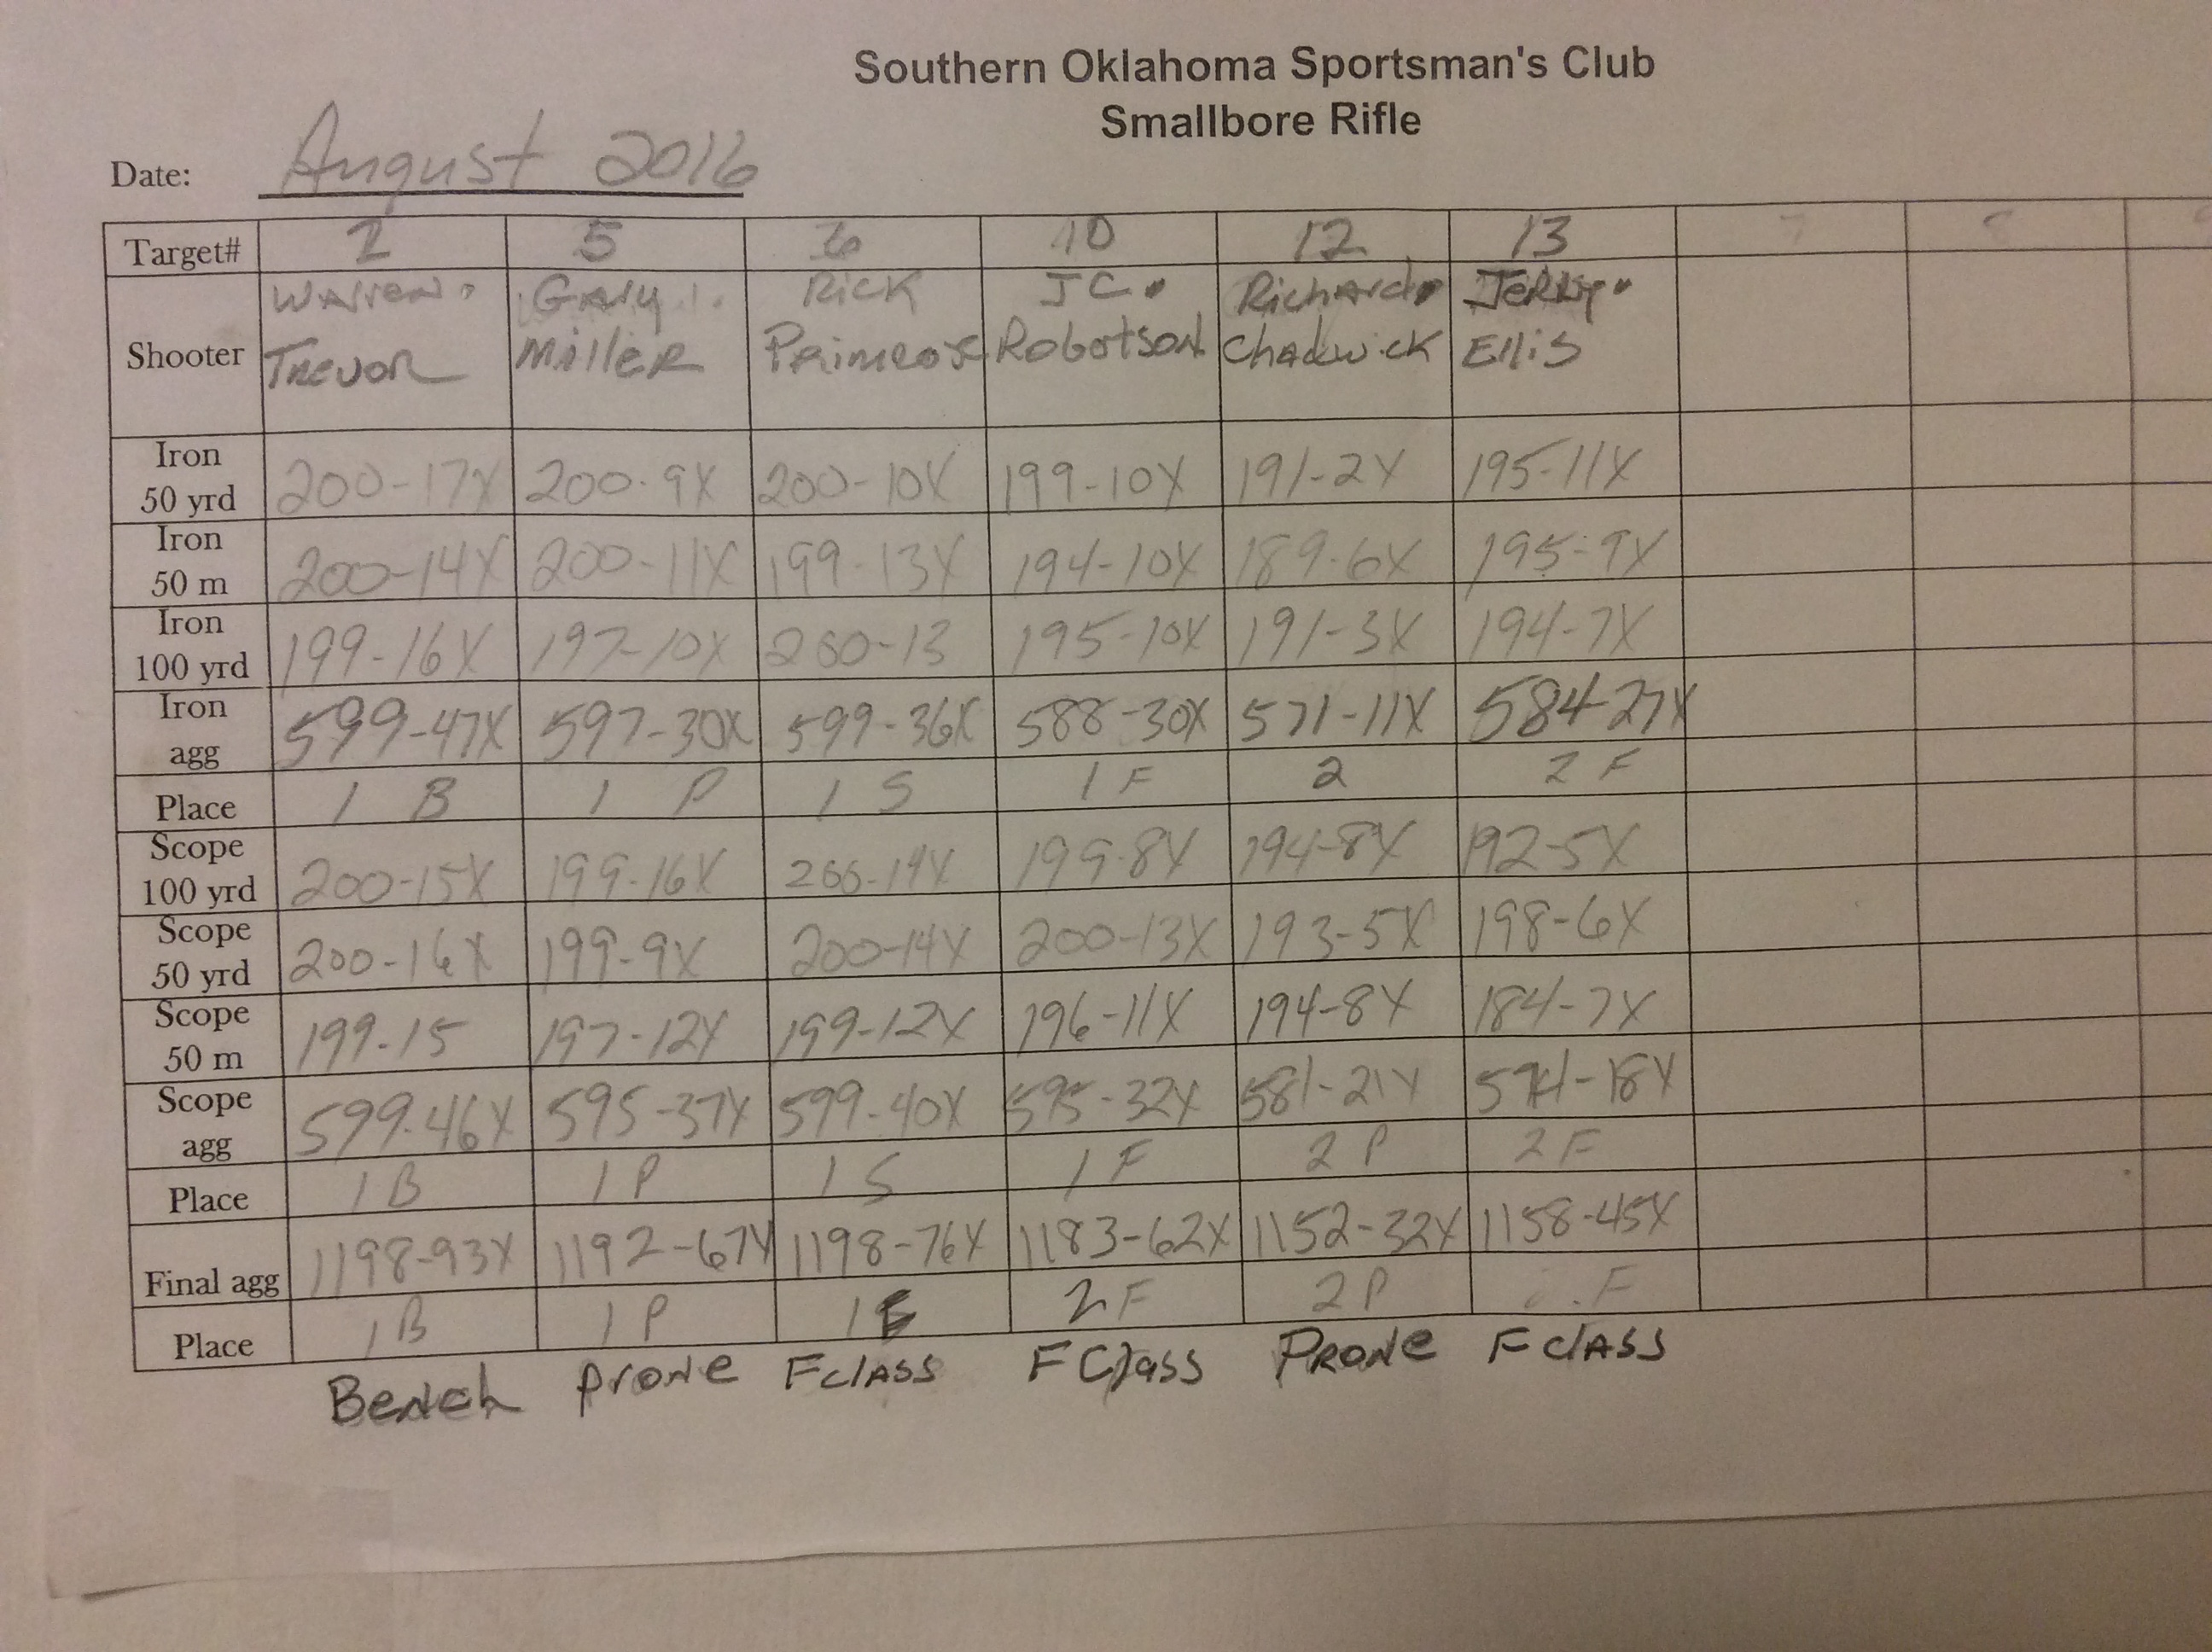 Southern Oklahoma Sportsman's Club
Smallbore Rifle
Date: August 2016
Target# 2 5 6 10 12 13 7 8
Shooter Warren Trevor Gary Miller Rick Primrose JC Robotson Richard Chadwick Jerry Ellis
Iron 50 yrd 200-17X 200-9X 200-10X 199-10X 191-2X 195-11X
Iron 50 m 200-14X 200-11X 199-13X 194-10X 189-6X 195-9X
Iron 100 yrd 199-16X 197-10X 200-13 195-10X 191-3X 194-7X
Iron agg 599-47X 597-30X 599-36X 588-30X 571-11X 584-27X
Place 1 B 1 P 1 S 1 F 2 2 F
Scope 100 yrd 200-15X 199-16X 200-14X 199-8X 194-8X 192-5X
Scope 50 yrd 200-16X 199-9X 200-14X 200-13X 193-5X 198-6X
Scope 50 m 199-15 197-12X 199-12X 196-11X 194-8X 184-7X
Scope agg 599-46X 595-37X 599-40X 595-32X 581-21X 574-18X
Place 1 B 1 P 1 S 1 F 2 P 2 F
Final agg 1198-93X 1192-67X 1198-76X 1183-62X 1152-32X 1158-45X
Place 1 B 1 P 1 2 F 2 P F
Bench Prone F class F Class Prone F class